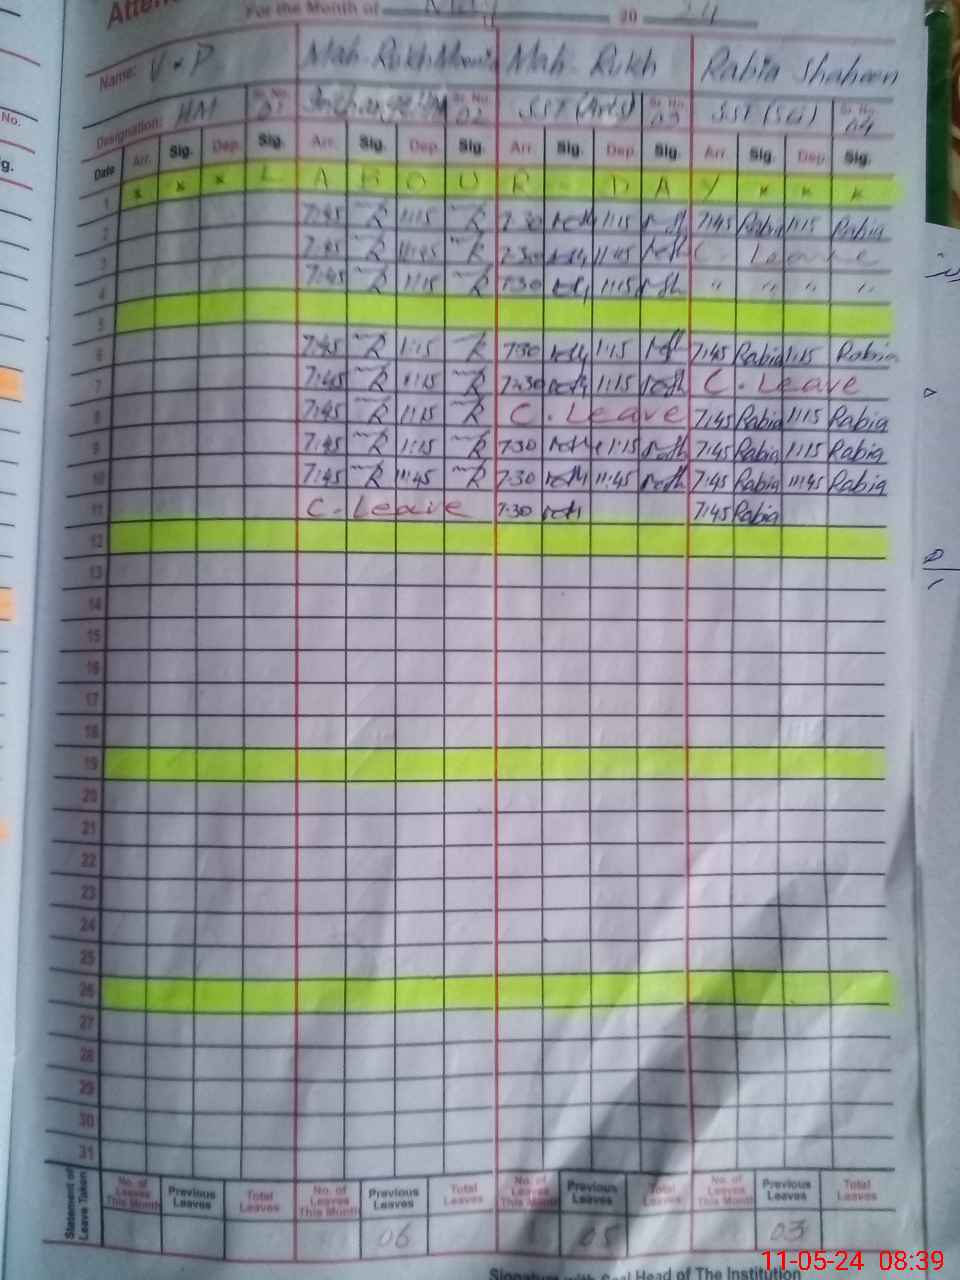 For the Month of May 20 24
Name: V.P Mah-Rukh Mah-Rukh Rabia Shaheen
Designation: HM Sr. No. 01 Incharge HM Sr. No. 02 SST (Arts) Sr. No. 03 SST (Sci) Sr. No. 04
Date Arr. Sig. Dep. Sig. Arr. Sig. Dep. Sig. Arr. Sig. Dep. Sig. Arr. Sig. Dep. Sig.
1 x x x L A B O U R - D A Y x x x
2 7:45 1:15 7:30 1:15 7:45 Rabia 1:15 Rabia
3 7:45 11:45 7:30 11:45 C. Leave
4 7:45 1:15 7:30 1:15 " " " "
5
6 7:45 1:15 7:30 1:15 7:45 Rabia 1:15 Rabia
7 7:45 1:15 7:30 1:15 C. Leave
8 7:45 1:15 C. Leave 7:45 Rabia 1:15 Rabia
9 7:45 1:15 7:30 1:15 7:45 Rabia 1:15 Rabia
10 7:45 11:45 7:30 11:45 7:45 Rabia 11:45 Rabia
11 C. Leave 7:30 7:45 Rabia
12
13
14
15
16
17
18
19
20
21
22
23
24
25
26
27
28
29
30
31
Statement of Leave Taken
No. of Leaves This Month Previous Leaves Total Leaves No. of Leaves This Month Previous Leaves Total Leaves No. of Leaves This Month Previous Leaves Total Leaves No. of Leaves This Month Previous Leaves Total Leaves
06 05 03
11-05-24 08:39
Signature with Seal Head of The Institution